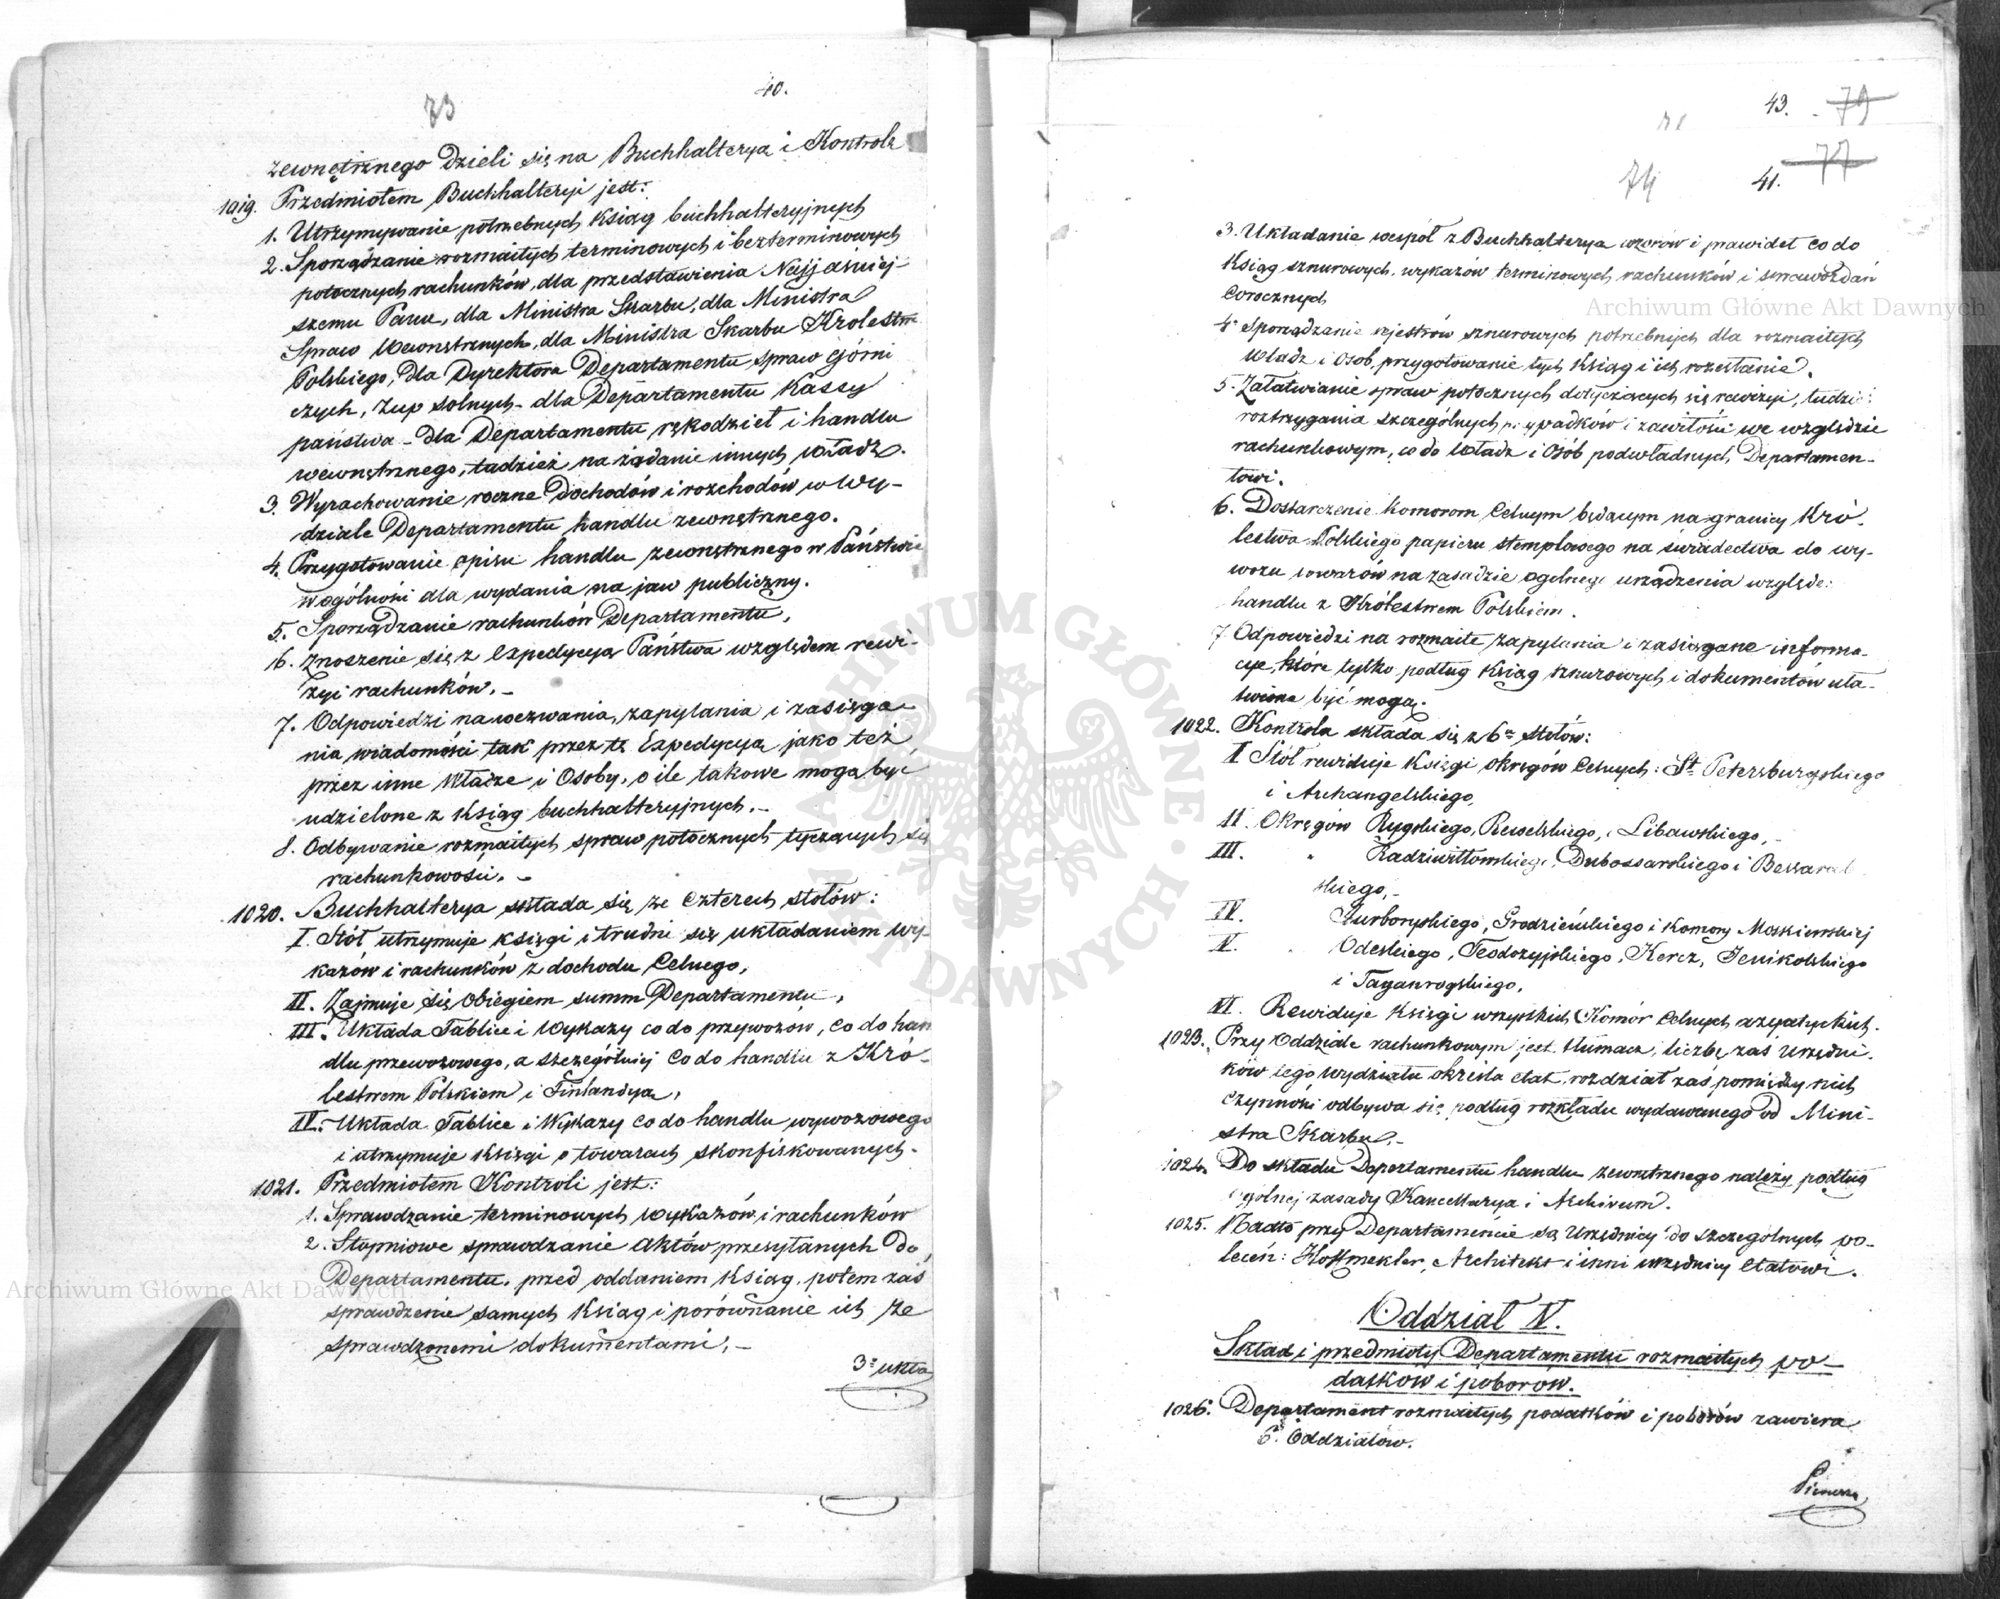 73
40.
zewnętrznego dzieli się na Buchhalteryą i Kontrolę
1019. Przedmiotem Buchhalteryi jest:
1. Utrzymywanie potrzebnych ksiąg buchhalteryjnych
2. Sporządzanie rozmaitych terminowych i bezterminowych
potocznych rachunków, dla przedstawienia Najjaśniej-
szemu Panu, dla Ministra Skarbu, dla Ministra
Spraw Wewnętrznych, dla Ministra Skarbu Królestwa
Polskiego, dla Dyrektora Departamentu spraw Górni
czych, Żup solnych - dla Departamentu Kassy
państwa - dla Departamentu rękodzieł i handlu
wewnętrznego, tudzież na żądanie innych władz.
3. Wyrachowanie roczne dochodów i rozchodów w Wy-
dziale Departamentu handlu zewnętrznego.
4. Przygotowanie opisu handlu zewnętrznego w Państwie
w ogólności dla wydania na jaw publiczny.
5. Sporządzanie rachunków Departamentu,
6. Znoszenie się z Expedycyą Państwa względem rewi-
zyi rachunków. -
7. Odpowiedzi na wezwania, zapytania i zasięga-
nia wiadomości tak przez tę Expedycyą jako też
przez inne Władze i Osoby, o ile takowe mogą być
udzielone z Ksiąg buchhalteryjnych. -
8. Odbywanie rozmaitych spraw potocznych tyczących się
rachunkowości. -
1020. Buchhalterya składa się ze czterech stołów:
I Stół utrzymuje księgi i trudni się układaniem wy-
kazów i rachunków z dochodu Celnego,
II. Zajmuje się obiegiem summ Departamentu,
III. Układa Tablice i Wykazy co do przywozów, co do han
dlu przewozowego, a szczególniej co do handlu z Kró-
lestwem Polskiem i Finlandyą,
IV. Układa Tablice i Wykazy co do handlu wywozowego
i utrzymuje księgi o towarach skonfiskowanych -
1021. Przedmiotem Kontroli jest:
1. Sprawdzanie terminowych Wykazów i rachunków
2. Stopniowe sprawdzanie aktów przesyłanych do
Departamentu, przed oddaniem ksiąg, potem zaś
sprawdzenie samych Ksiąg i porównanie ich ze
sprawdzonemi dokumentami, -
3. ukła
43. 79
74 41. 77
3. Układanie wespół z Buchhalteryą wzorów i prawideł co do
Ksiąg sznurowych, wykazów terminowych, rachunków i sprawozdań
Corocznych
4. Sporządzanie rejestrów sznurowych potrzebnych dla rozmaitych
Władz i Osób, przygotowanie tych Ksiąg i ich rozesłanie.
5. Załatwianie spraw potocznych dotyczących się rewizyi, tudzież
roztrzygania szczególnych przypadków i zawiłości we względzie
rachunkowym, co do Władz i Osób podwładnych Departamen-
towi.
6. Dostarczenie Komorom Celnym będącym na granicy Kró-
lestwa Polskiego papieru stemplowego na świadectwa do wy-
wozu towarów na zasadzie ogólnego urządzenia względem
handlu z Królestwem Polskiem.
7. Odpowiedzi na rozmaite zapytania i zasięgane informa-
cye, które tylko podług Ksiąg sznurowych i dokumentów uła-
twione być mogą.
1022. Kontrola składa się z 6u stołów:
I Stół rewiduje Księgi okręgów Celnych: St. Petersburgskiego
i Archangelskiego,
II. Okręgów Rygskiego, Rewelskiego, i Libawskiego, -
III. " Radziwiłłowskiego, Dubossarskiego i Bessarab
skiego, -
IV. Jurborgskiego, Grodzieńskiego i Komory Moskiewskiej
V. " Odeskiego, Teodozyjskiego, Kercz, Jenikolskiego
i Taganrogskiego,
VI. Rewiduje Księgi wszystkich Komór Celnych azyatyckich.
1023. Przy Oddziale rachunkowym jest tłumacz, liczbę zaś urzędni-
ków tego wydziału określa etat, rozdział zaś pomiędzy nich
czynności odbywa się podług rozkładu wydawanego od Mini-
stra Skarbu. -
1024. Do składu Departamentu handlu zewnętrznego należy podług
ogólnej zasady Kancellarya i Archiwum.
1025. Nadto przy Departamencie są Urzędnicy do szczególnych po-
leceń: Hoffmekler, Architekt i inni urzędnicy etatowi.
Oddział IV.
Skład i przedmioty Departamentu rozmaitych po-
datków i poborów.
1026. Departament rozmaitych podatków i poborów zawiera
6. Oddziałów.
Pierwsza
Archiwum Główne Akt Dawnych
Archiwum Główne Akt Dawnych
ARCHIWUM GŁÓWNE AKT DAWNYCH